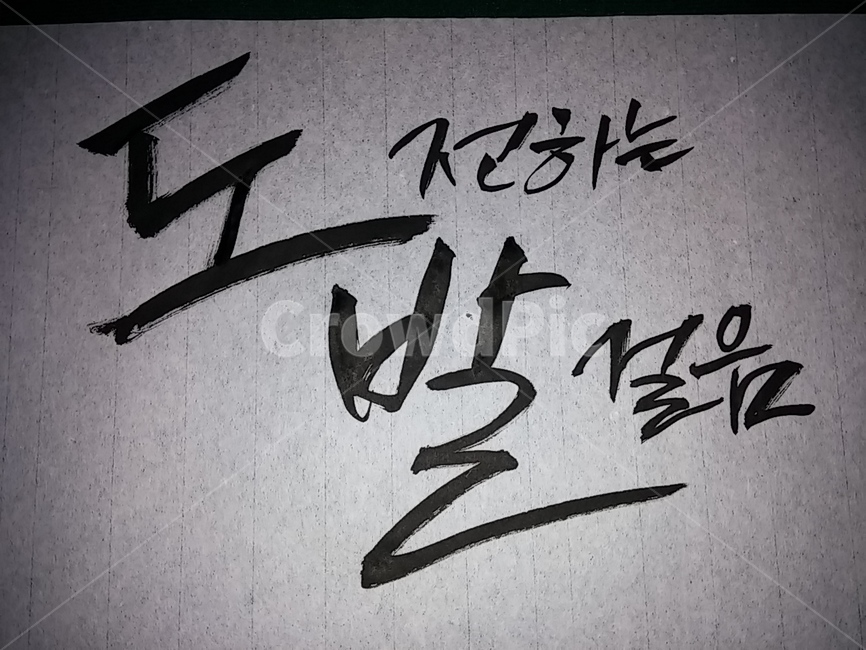 도전하는
발걸음
CrowdPic